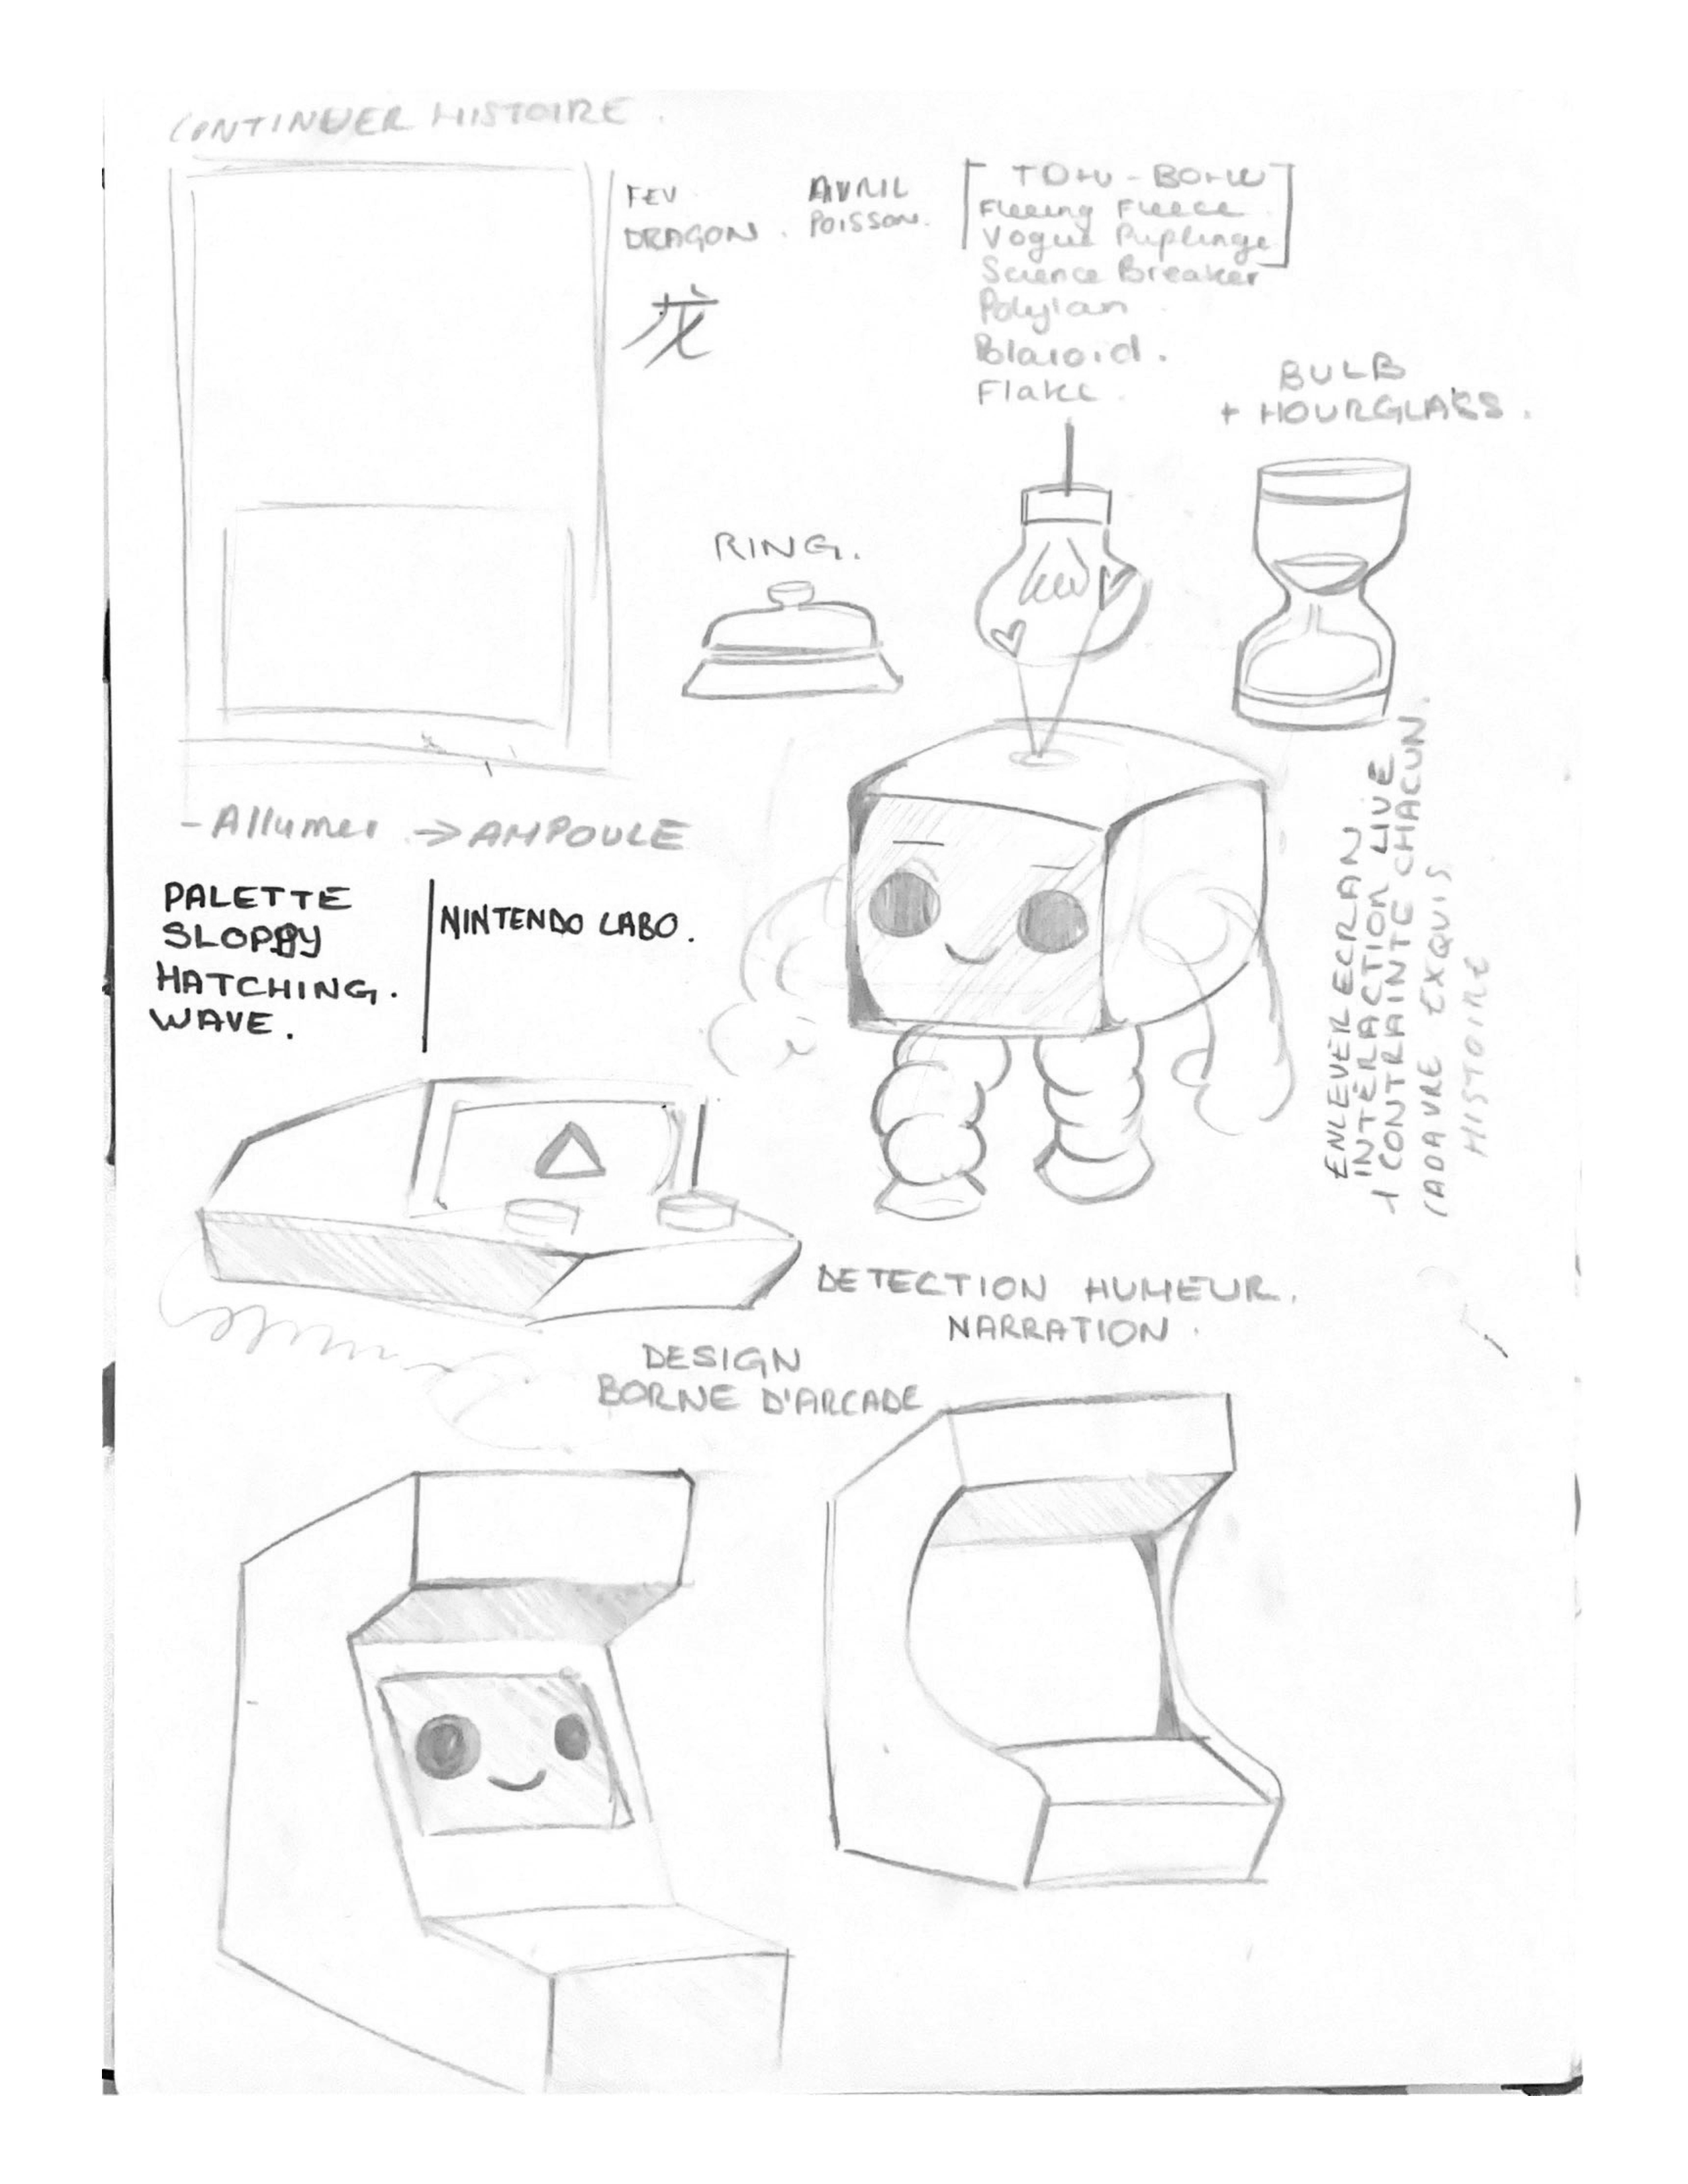 CONTINUER HISTOIRE.
FEV
DRAGON.
龙
AVRIL
POISSON.
TOHU-BOHU
Fleeing Fleece
Vogue
Science Breaker
Polaroid.
Flake.
BULB
+ HOURGLASS.
RING.
-Allumer -> AMPOULE
PALETTE
SLOPPY
HATCHING.
WAVE.
NINTENDO LABO.
ENLEVER ECRAN
INTERACTION LIVE
1 CONTRAINTE CHACUN.
CADAVRE EXQUIS
HISTOIRE
DETECTION HUMEUR.
NARRATION.
DESIGN
BORNE D'ARCADE